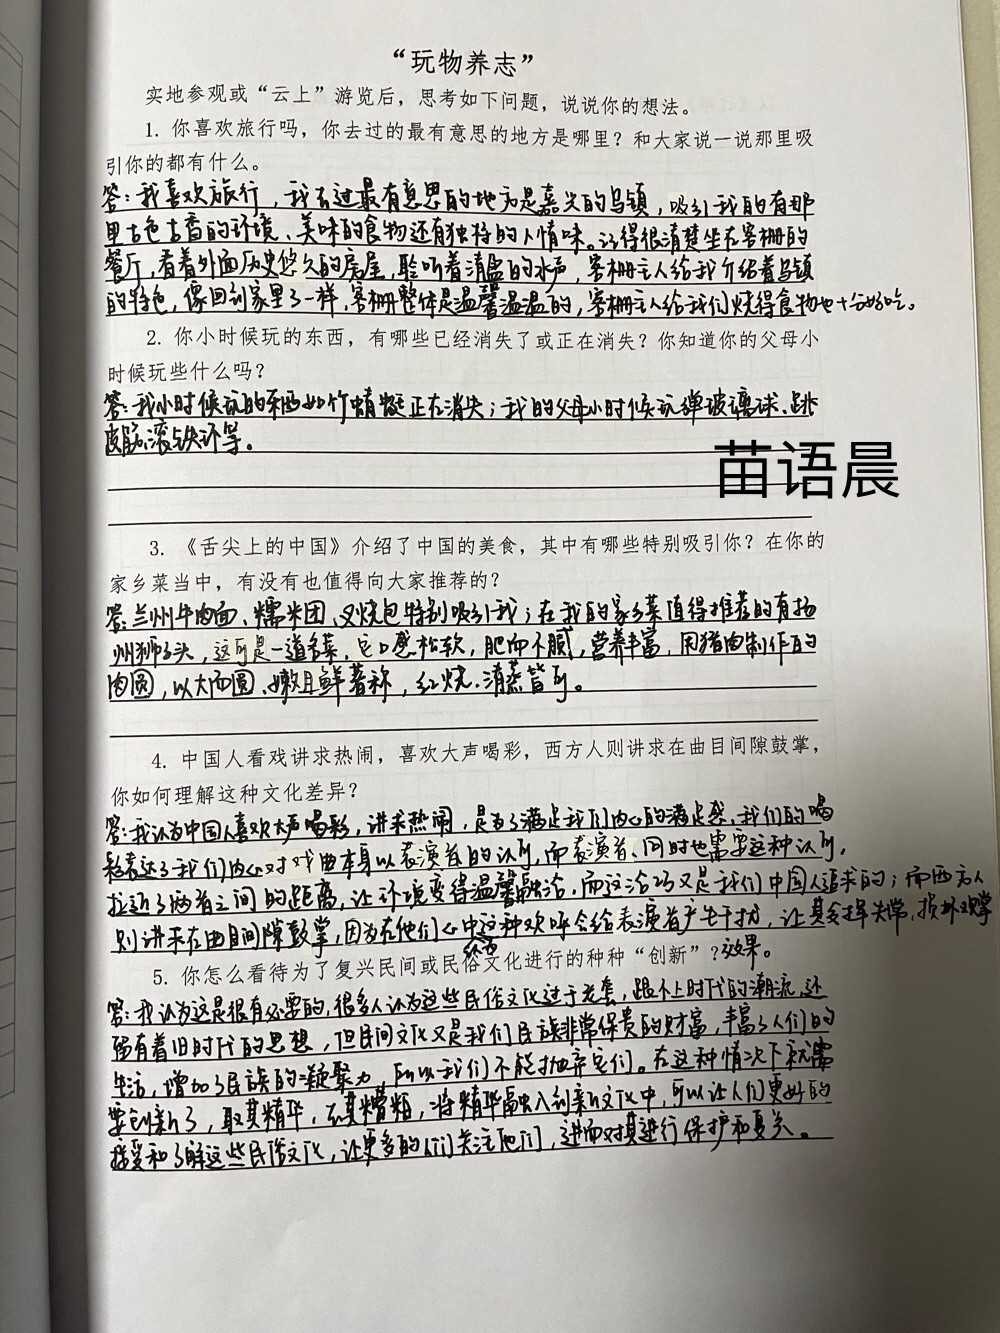 “玩物养志”
实地参观或“云上”游览后，思考如下问题，说说你的想法。
1. 你喜欢旅行吗，你去过的最有意思的地方是哪里？和大家说一说那里吸
引你的都有什么。
答：我喜欢旅行，我去过最有意思的地方是嘉兴的乌镇，吸引我的有那
里古色古香的环境、美味的食物还有独特的人情味。记得很清楚坐在客栅的
餐厅，看着外面历史悠久的房屋，聆听着清盈的水声，客栅主人给我介绍着乌镇
的特色，像回到家里了一样，客栅整体是温馨温温的，客栅主人给我们烧得食物也十分好吃。
2. 你小时候玩的东西，有哪些已经消失了或正在消失？你知道你的父母小
时候玩些什么吗？
答：我小时候玩的东西如竹蜻蜓正在消失；我的父母小时候玩弹玻璃球、跳
皮筋、滚铁环等。
苗语晨
3. 《舌尖上的中国》介绍了中国的美食，其中有哪些特别吸引你？在你的
家乡菜当中，有没有也值得向大家推荐的？
答：兰州牛肉面、糯米团、叉烧包特别吸引我；在我的家乡菜值得推荐的有扬
州狮子头，这可是一道名菜，它口感松软，肥而不腻，营养丰富，因猪肉制作的
肉圆，以大而圆、嫩且鲜著称，红烧、清蒸皆可。
4. 中国人看戏讲求热闹，喜欢大声喝彩，西方人则讲求在曲目间隙鼓掌，
你如何理解这种文化差异？
答：我认为中国人喜欢大声喝彩，讲求热闹，是为了满足我们内心的满足感，我们的喝
彩表达了我们内心对戏曲本身以表演者的认可，而表演者、同时也需要这种认可，
拉近了两者之间的距离，让环境变得温馨融洽，而这恰巧又是我们中国人追求的；而西方人
则讲求在曲目间隙鼓掌，因为在他们心中这种欢呼会给表演者产生干扰，让其发挥失常，损坏观掌
效果。
5. 你怎么看待为了复兴民间或民俗文化进行的种种“创新”？
答：我认为这是很有必要的，很多人认为这些民俗文化过于老套，跟不上时代的潮流，还
留有着旧时代的思想，但民间文化又是我们民族非常保贵的财富，丰富了人们的
生活，增加了民族的凝聚力，所以我们不能抛弃它们。在这种情况下就需
要创新了，取其精华，去其糟粕，将精华融入创新文化中，可以让人们更好的
接受和了解这些民俗文化，让更多的人们关注他们，进而对其进行保护和复兴。